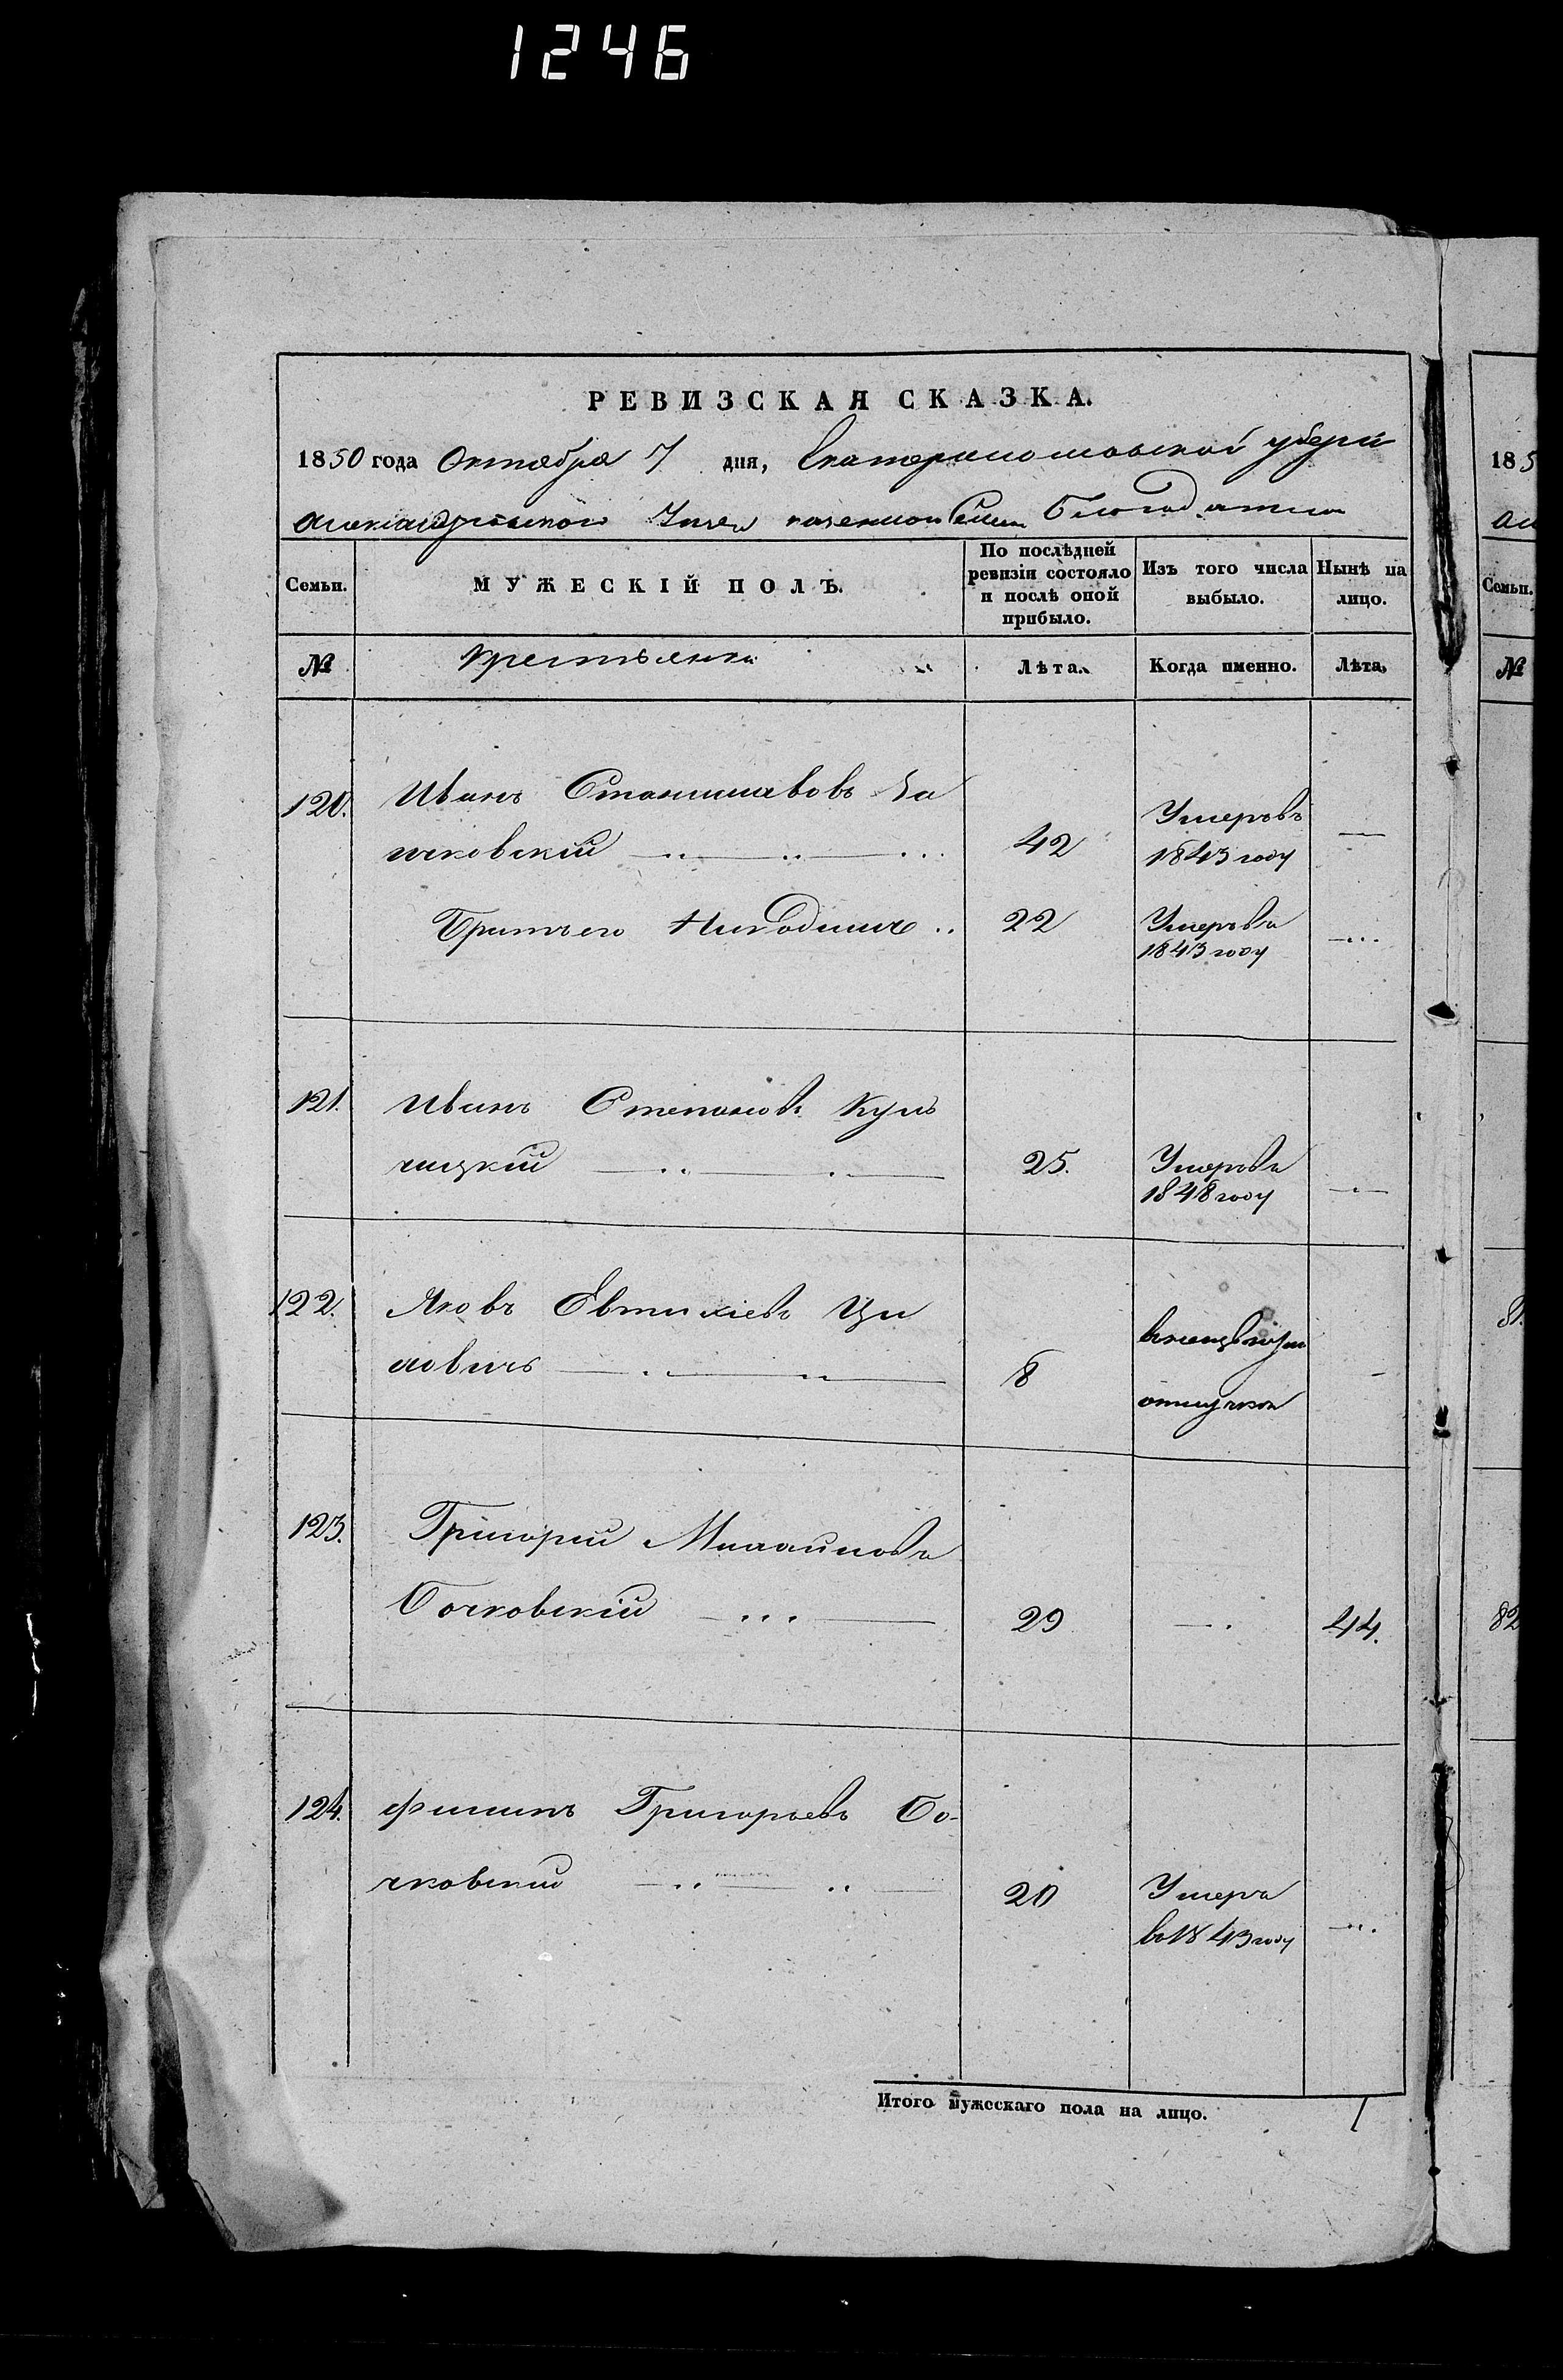 1246
РЕВИЗСКАЯ СКАЗКА.
1850 года Октября 7 дня, Екатеринославской губерніи
Александровскаго Уѣзда казенного Селенія Благодатнаго
Семьи. МУЖЕСКІЙ ПОЛЪ. По послѣдней ревизіи состояло и послѣ оной прибыло. Изъ того числа выбыло. Нынѣ на лицо.
№ Крестьяне Лѣта. Когда именно. Лѣта.
120. Иванъ Станиславовъ
чковскій 42 Умеръ въ 1843 году —
Братъ его Никодимъ 22 Умеръ въ 1843 году —
121. Иванъ Степановъ Куль
чицкій 25. Умеръ въ 1848 году —
122. Яковъ Евтихіевъ Ци
ловичъ 8 отлучкѣ
123. Григорій Михайловъ
Бочковскій 29 — 44.
124. Филипъ Григорьевъ Бо-
чковскій 20 Умеръ въ 1843 году —
Итого мужескаго пола на лицо. 1
185
Ал
Семьи.
№
81.
82